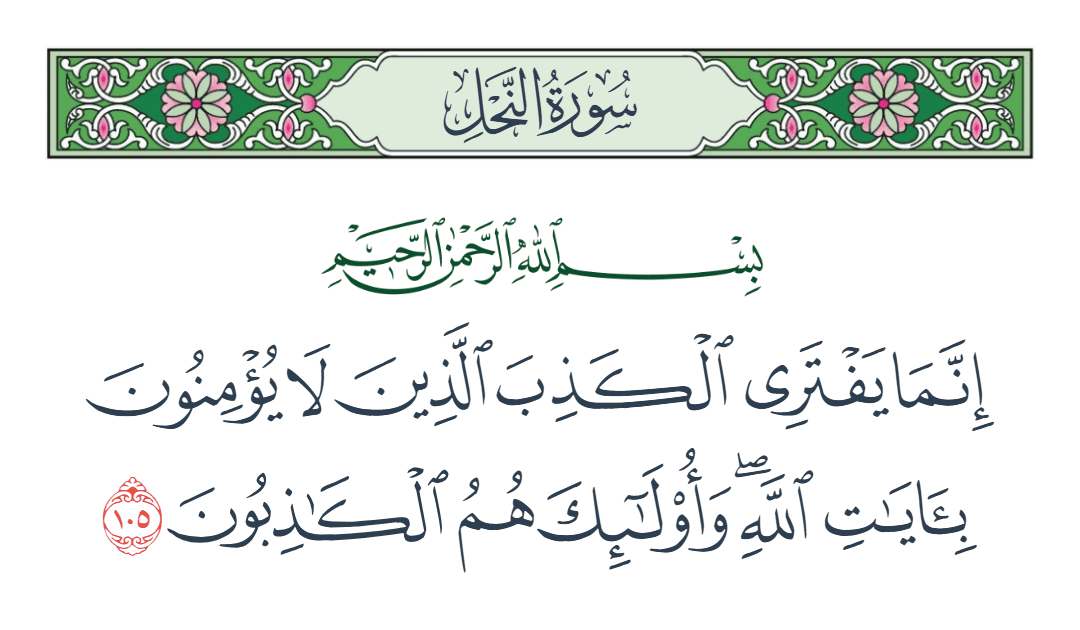 سُورَةُ النَّحْلِ
بِسْمِ ٱللَّهِ ٱلرَّحْمَٰنِ ٱلرَّحِيمِ
إِنَّمَا يَفْتَرِى ٱلْكَذِبَ ٱلَّذِينَ لَا يُؤْمِنُونَ
بِـَٔايَـٰتِ ٱللَّهِ ۖ وَأُو۟لَـٰٓئِكَ هُمُ ٱلْكَـٰذِبُونَ ١٠٥